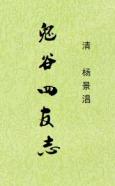 清 杨景淐
鬼谷四友志